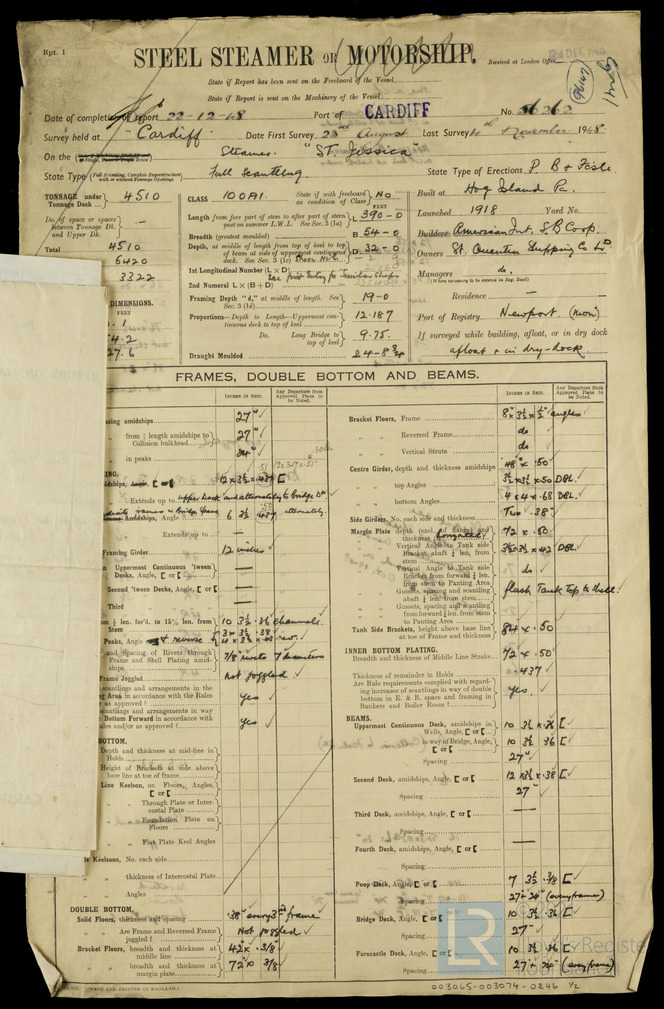 Rpt. 1
STEEL STEAMER OR MOTORSHIP.
Received at London Office
State if Report has been sent on the Freeboard of the Vessel
State if Report is sent on the Machinery of the Vessel
Date of completion of report 22-12-48 Port of CARDIFF No. 56262
Survey held at Cardiff Date First Survey 23rd August Last Survey 4th November 1948
On the Steamer "ST. JESSICA"
State Type Full Scantling State Type of Erections P. B & Fcsle
TONNAGE under Tonnage Deck 4510
Do. of space or spaces between Tonnage Dk. and Upper Dk. —
Total 4510
5420
3322
DIMENSIONS.
FEET
.1
4.2
27.6
CLASS 100A1. State if with freeboard as condition of Class No
FEET
Length from fore part of stem to after part of stern post on summer L.W.L. See Sec. 3 (1a) L 390-0
Breadth (greatest moulded) B 54-0
Depth, at middle of length from top of keel to top of beam at side of uppermost continuous deck. See Sec. 3 (1c) D 32-0
1st Longitudinal Number (L × D)
2nd Numeral L × (B + D)
Framing Depth "d," at middle of length. See Sec. 3 (1d) 19-0
Proportions—Depth to Length—Uppermost continuous deck to top of keel 12.187
Do. Long Bridge to top of keel 9.75.
Draught Moulded 24-8¾
Built at Hog Island Pa.
Launched 1918 Yard No.
Builders American Int. S.B Corp.
Owners St. Quentin Shipping Co Ld
Managers do.
(Where necessary to be entered in Reg. Book)
Residence —
Port of Registry Newport (Mon)
If surveyed while building, afloat, or in dry dock
afloat & in dry-dock.
FRAMES, DOUBLE BOTTOM AND BEAMS.
INCHES IN SHIP. Any Departure from Approved Plans to be Noted.
amidships 27"
from ⅕ length amidships to Collision bulkhead 27"
in peaks 24"
12 × 3½ × .437 [
Extends up to upper Deck and alternately to Bridge Dk
Amidships, Angle 6 3½ .437 alternately.
Extends up to —
Framing Girder 12 inches
Uppermost Continuous 'tween Decks, Angles, [ or [ —
Second 'tween Decks, Angles, [ or [ —
Third —
for'd. to 15% len. from Stem 10 3½ .36 channels
Peaks, Angle & reverse 3 × 3 × .38
and Spacing of Rivets through Frame and Shell Plating amidships 7/8 rivets 7 diameters
Frame Joggled not joggled
scantlings and arrangements in the Area in accordance with the Rules as approved? yes
scantlings and arrangements in way Bottom Forward in accordance with Rules and/or as approved? yes
BOTTOM.
Depth and thickness at mid-line in Holds
Height of Brackets at side above base line at toe of frame
Line Keelson, on Floors, Angles, [ or [
Through Plate or Intercostal Plate
Foundation Plate on Floors
Flat Plate Keel Angles
Keelsons, No. each side
thickness of Intercostal Plate
Angles
DOUBLE BOTTOM.
Solid Floors, thickness and spacing .38" every 3rd frame
Are Frame and Reversed Frame joggled? Not joggled
Bracket Floors, breadth and thickness at middle line 42" × 3/8"
breadth and thickness at margin plate 72" × 3/8
INCHES IN SHIP. Any Departure from Approved Plans to be Noted.
Bracket Floors, Frame 8" × 3½ × ½" angles
Reversed Frame do
Vertical Struts do
Centre Girder, depth and thickness amidships 48" × .50
top Angles 3½ × 3½ × .50 DBL.
bottom Angles 4 × 4 × .68 DBL.
Side Girders, No. each side and thickness Two .38"
Margin Plate depth (excl. of flange) and thickness horizontal 72 × .50
Vertical Angle to Tank side Bracket abaft ¼ len. from stem 3½ × 3½ × .42 DBL
Vertical Angle to Tank side Bracket from forward ¼ len. from stem to Panting Area do
Gussets, spacing and scantling abaft ¼ length from stem flush Tank Top to Shell.
Gussets, spacing and scantling from forward ¼ len. from stem to Panting Area
Tank Side Brackets, height above base line at toe of Frame and thickness 84 × .50
INNER BOTTOM PLATING.
Breadth and thickness of Middle Line Strake 72 × .50
Thickness of remainder in Holds .437
Are Rule requirements complied with regarding increases of scantlings in way of double bottom in E. & B. space and framing in Bunkers and Boiler Room? yes.
BEAMS.
Uppermost Continuous Deck, amidships in Wells, Angle, [ or [ 10 3½ × .36 [
in way of Bridge, Angle, [ or [ 10 3½ .36 [
Spacing 27"
Second Deck, amidships, Angle, [ or [ 12 × 3½ × .38 [
Spacing 27"
Third Deck, amidships, Angle, [ or [ —
Spacing
Fourth Deck, amidships, Angle, [ or [ —
Spacing
Poop Deck, Angle, [ or [ 7 3½ .3/8 [
Spacing 27" + 24" (every frame)
Bridge Deck, Angle, [ or [ 10 3½ .36 [
Spacing 27"
Forecastle Deck, Angle, [ or [ 10 3½ .36 [
Spacing 27" + 24" (every frame)
(MADE AND PRINTED IN ENGLAND.)
LR
Register
Foundation
003065-003074-0246 1/2